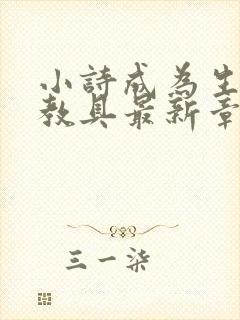 小詩成為生
教具最新章
三一柒